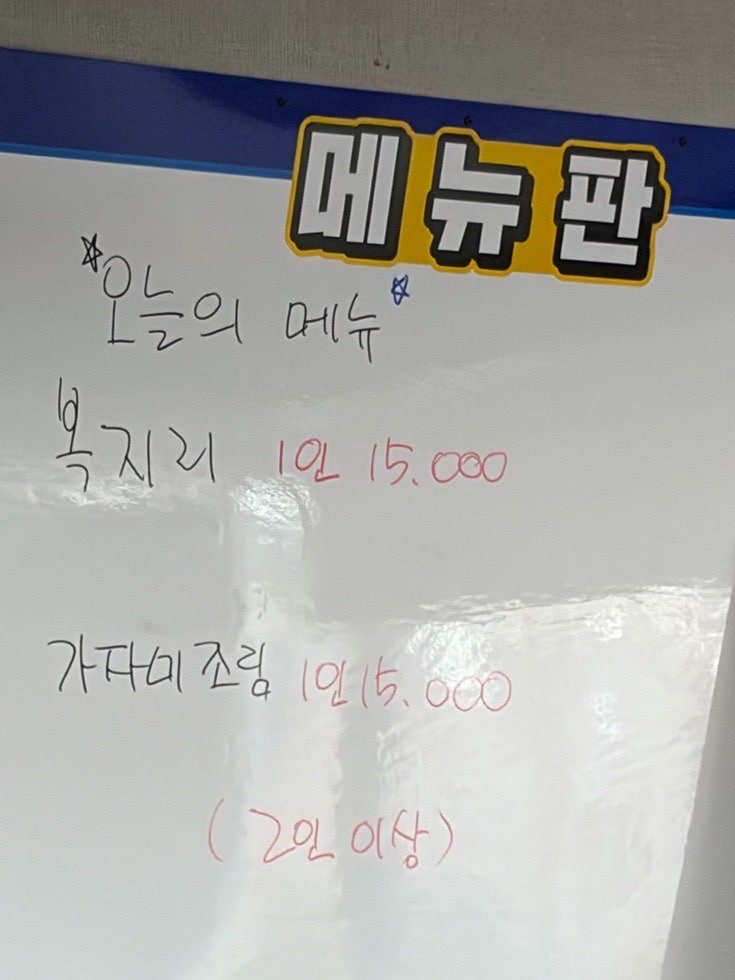 메뉴판
☆오늘의 메뉴☆
복지리 1인 15.000
가자미조림 1인 15.000
(2인 이상)